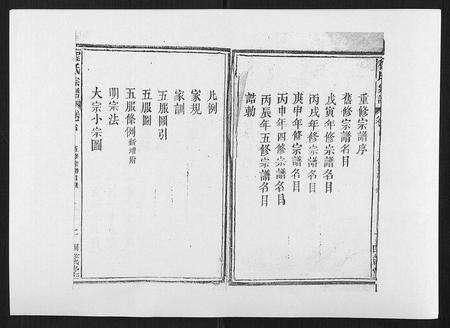 重修宗譜序
舊修宗譜名目
戊寅年修宗譜名目
丙戌年修宗譜名目
庚申年修宗譜名目
丙申年四修宗譜名目
丙辰年五修宗譜名目
誥勅
凡例
家規
家訓
五服圖引
五服圖
五服條例新增附
明宗法
大宗小宗圖
氏宗譜